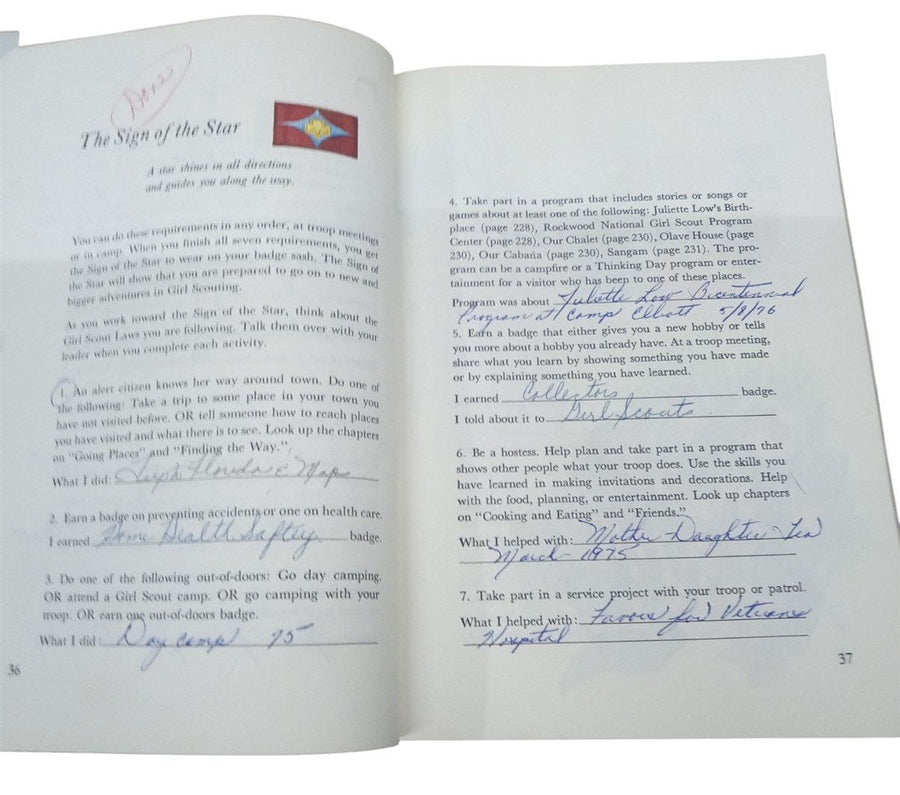 Done
The Sign of the Star
A star shines in all directions
and guides you along the way.
You can do these requirements in any order, at troop meetings
or in camp. When you finish all seven requirements, you get
the Sign of the Star to wear on your badge sash. The Sign of
the Star will show that you are prepared to go on to new and
bigger adventures in Girl Scouting.
As you work toward the Sign of the Star, think about the
Girl Scout Laws you are following. Talk them over with your
leader when you complete each activity.
1. An alert citizen knows her way around town. Do one of
the following: Take a trip to some place in your town you
have not visited before. OR tell someone how to reach places
you have visited and what there is to see. Look up the chapters
on "Going Places" and "Finding the Way."
What I did: Florida & Map
2. Earn a badge on preventing accidents or one on health care.
I earned Home Health Saftey badge.
3. Do one of the following out-of-doors: Go day camping.
OR attend a Girl Scout camp. OR go camping with your
troop. OR earn one out-of-doors badge.
What I did: Day camp 75
36
4. Take part in a program that includes stories or songs or
games about at least one of the following: Juliette Low's Birth-
place (page 228), Rockwood National Girl Scout Program
Center (page 228), Our Chalet (page 230), Olave House (page
230), Our Cabaña (page 230), Sangam (page 231). The pro-
gram can be a campfire or a Thinking Day program or enter-
tainment for a visitor who has been to one of these places.
Program was about Juliette Low Bicentennial
Program at Camp Elliott 5/8/76
5. Earn a badge that either gives you a new hobby or tells
you more about a hobby you already have. At a troop meeting,
share what you learn by showing something you have made
or by explaining something you have learned.
I earned Collectors badge.
I told about it to Girl Scouts.
6. Be a hostess. Help plan and take part in a program that
shows other people what your troop does. Use the skills you
have learned in making invitations and decorations. Help
with the food, planning, or entertainment. Look up chapters
on "Cooking and Eating" and "Friends."
What I helped with: Mother Daughter Tea
March - 1975
7. Take part in a service project with your troop or patrol.
What I helped with: Favors for Veterans
Hospital
37